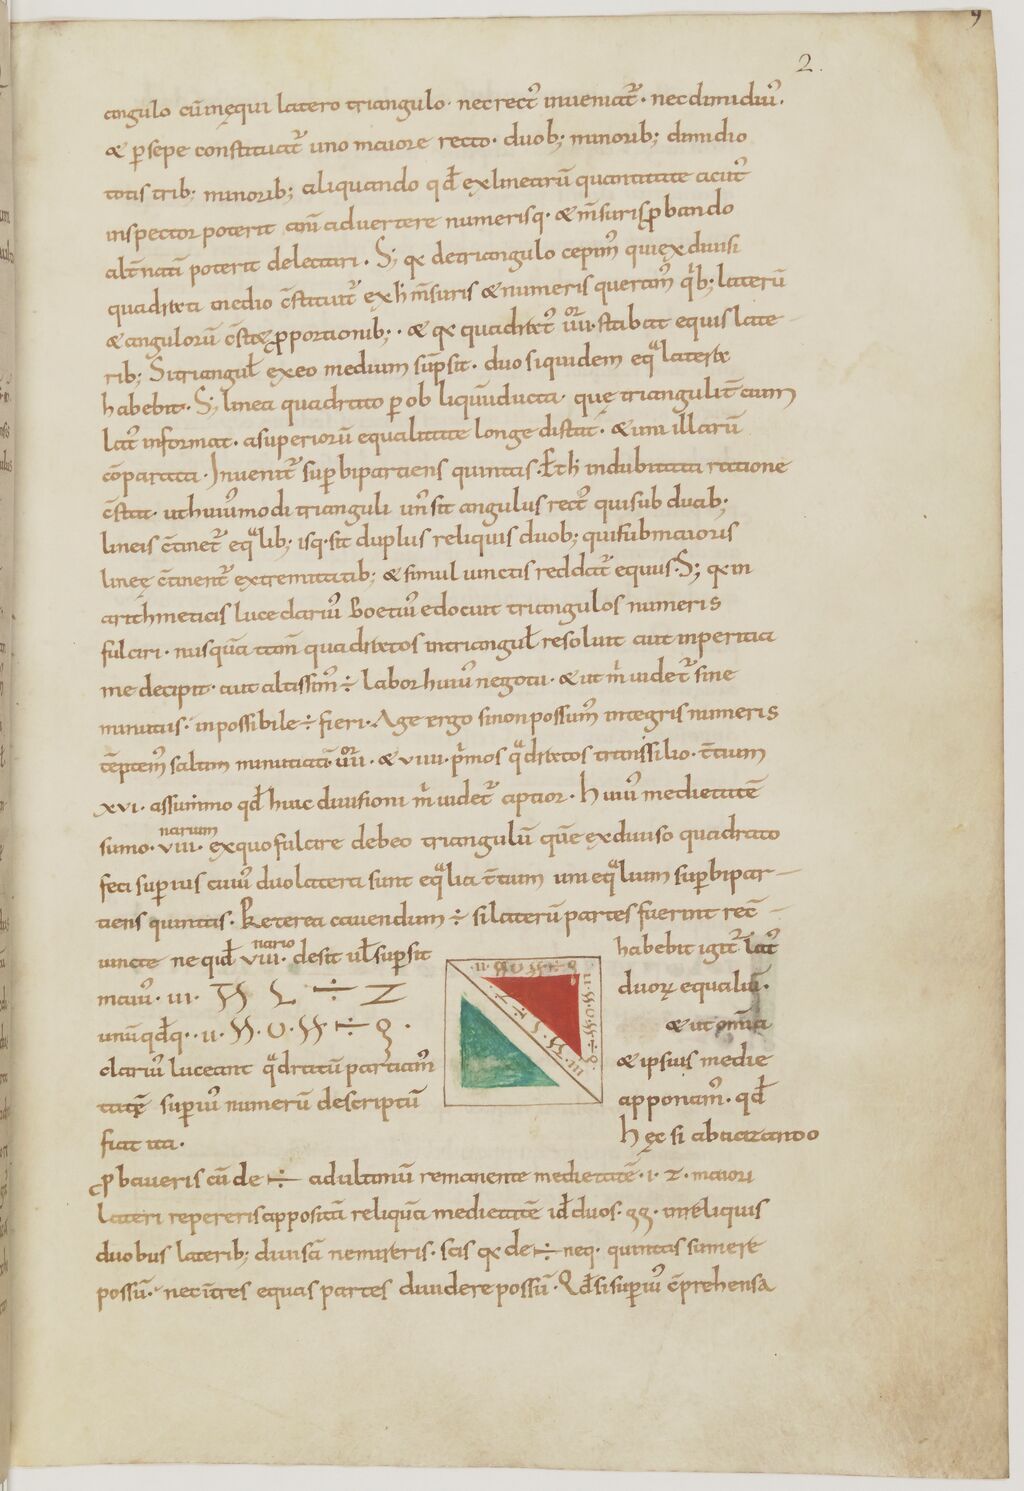 2.
angulo cũ inęqui latero triangulo · nec rect᷒ inueniat᷒ · nec dimidiũ᷒.
& p̲ sepe constituat᷒ uno maiore recto · duob; minorib; dimidio
totis trib; minorib; aliquando qđ ex linearũ quantitate acut᷒
inspector poterit animaduertere numerisq· & m̄suris ꝓbando
alt̄natī poterit delectari . S; qͣ de triangulo cepim᷒ qui ex diuisi
quadrati medio c̄stituit᷒ ex h̄ m̄suris & numeris queram᷒ qͥb; laterũ
& angulorũ c̄stet ꝓportionib; · & qͣ quadrat᷒ ·iiii· stabat equis late-
rib; Si triangul̄ ex eo medium sũpsit · duo siquidem eqͣ latera
habebit · S; linea quadrato p̲ obliquũ ducta · quę trianguli t̄cium
lat᷒ informat · a superiorũ equalitate longe distat · & uni illarũ
cōparata · Inuenit᷒ sup̲bipartiens quintas · Et h̄ indubitata ratione
c̄stat · ut huiu᷒modi trianguli un᷒ sit angulus rect᷒ qui sub duab;
lineis c̄tinet᷒ eqͣlib; isq· sit duplus reliquis duob; qui sub maioris
lineę c̄tinent᷒ extremitatib; & simul iunctis reddat᷒ equus · S; qͣ in
arithmeticis luce clariu᷒ Boetiu᷒ edocuit triangulos numeris
fulciri · nusquā tam̄ quadratos in triangul̄ resoluit aut inperitia
me decipit · aut altissim᷒ ÷ labor huiu᷒ negotii · & ut m̄ uidet᷒ sine
minutiis · inpossibile ÷ fieri · Age ergo si non possum᷒ integris numeris
tēptem᷒ saltim minutiatī · iiii · & viiii · pͥmos qͣdratos transsilio · t̄cium
xvi · assummo qđ huic diuisioni m̄ uidet᷒ aptior · Huiu᷒ medietatē
narium
sumo · viii · ex quo fulcire debeo triangulũ quē ex diuiso quadrato
feci superius cuiu᷒ duo latera sunt eqͣlia t̄cium uni eqͣlium sup̲bipar-
tiens quintas · Preterea cauendum ÷ si laterũ partes fuerint rec̄-
nario
uincte ne qͥd viii · desit ul̄ supsit
maiu᷒ · iii ·
unũ qđq· · ii ·
clariu᷒ luceant qͣdratũ partiam᷒
tatē superiu᷒ numerũ descriptũ
fiat ita .
habebit igit᷒ lat᷒
duoꝝ equaliũ ·
& ut om̄ia
& ipsius medie
apponam᷒ · qđ
Hęc si abacizando
ꝓbaueris cũ de ÷ ad ultimũ remanente medietatē · i · z · maiori
lateri repereris appositā reliquā medietatē iđ duos · 99 · in reliquis
duobus laterib; diuisā nemireris · scis qͣ de ÷ neq· quintas sumere
possũ · nec ī tres equas partes diuidere possũ · Qđ si superiu᷒ c̄prehensa